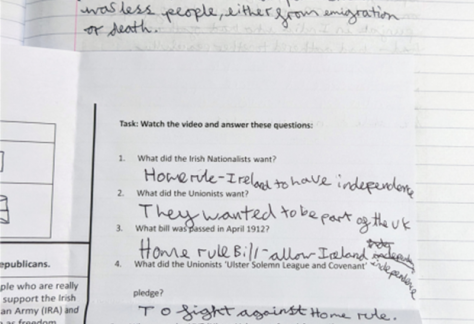 was less people, either from emigration
or death.
Task: Watch the video and answer these questions:
1. What did the Irish Nationalists want?
Home rule - Ireland to have independence
2. What did the Unionists want?
They wanted to be part of the UK
3. What bill was passed in April 1912?
Home rule Bill - allow Ireland independence
4. What did the Unionists 'Ulster Solemn League and Covenant'
pledge?
To fight against Home rule.
epublicans.
ple who are really
support the Irish
an Army (IRA) and
as freedom